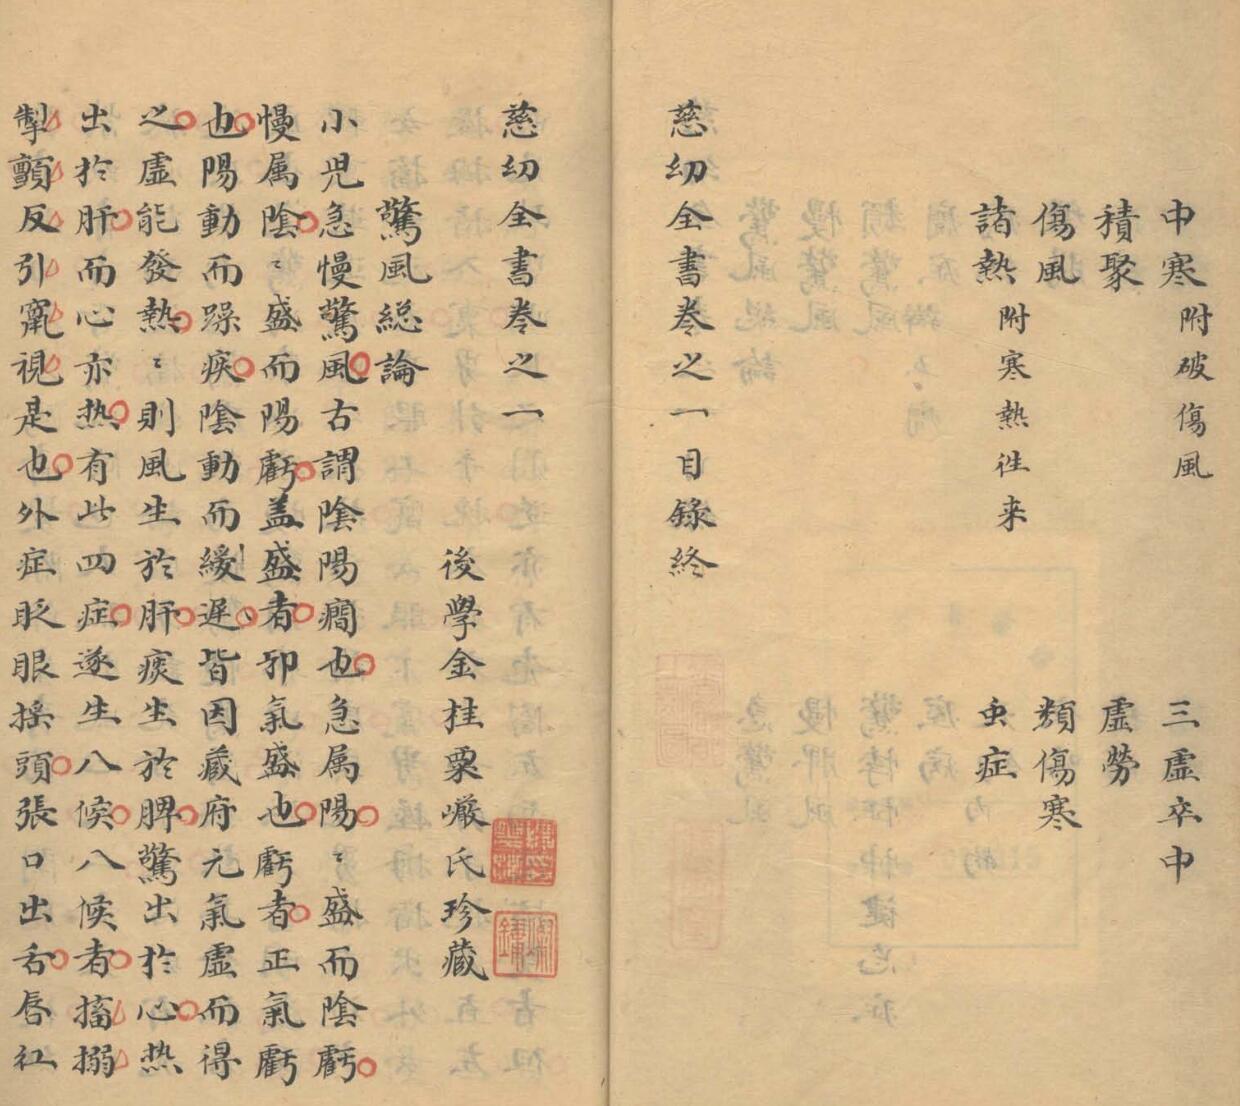 中寒附破傷風　三虛卒中
積聚　虛勞
傷風　類傷寒
諸熱附寒熱徃来　虫症
慈幼全書卷之一目錄終
慈幼全書卷之一
後學金桂粟巖氏珍藏
驚風総論
小兒急慢驚風古謂陰陽癎也急属陽〻盛而陰虧
慢属陰〻盛而陽虧盖盛者邪氣盛也虧者正氣虧
也陽動而躁疾陰動而緩遲皆因蔵府元氣虛而得
之虛能發熱〻則風生於肝痰生於脾驚出於心热
出於肝而心亦热有此四症遂生八候八候者搐搦
掣顫反引竄視是也外症眨眼搖頭張口出舌唇红